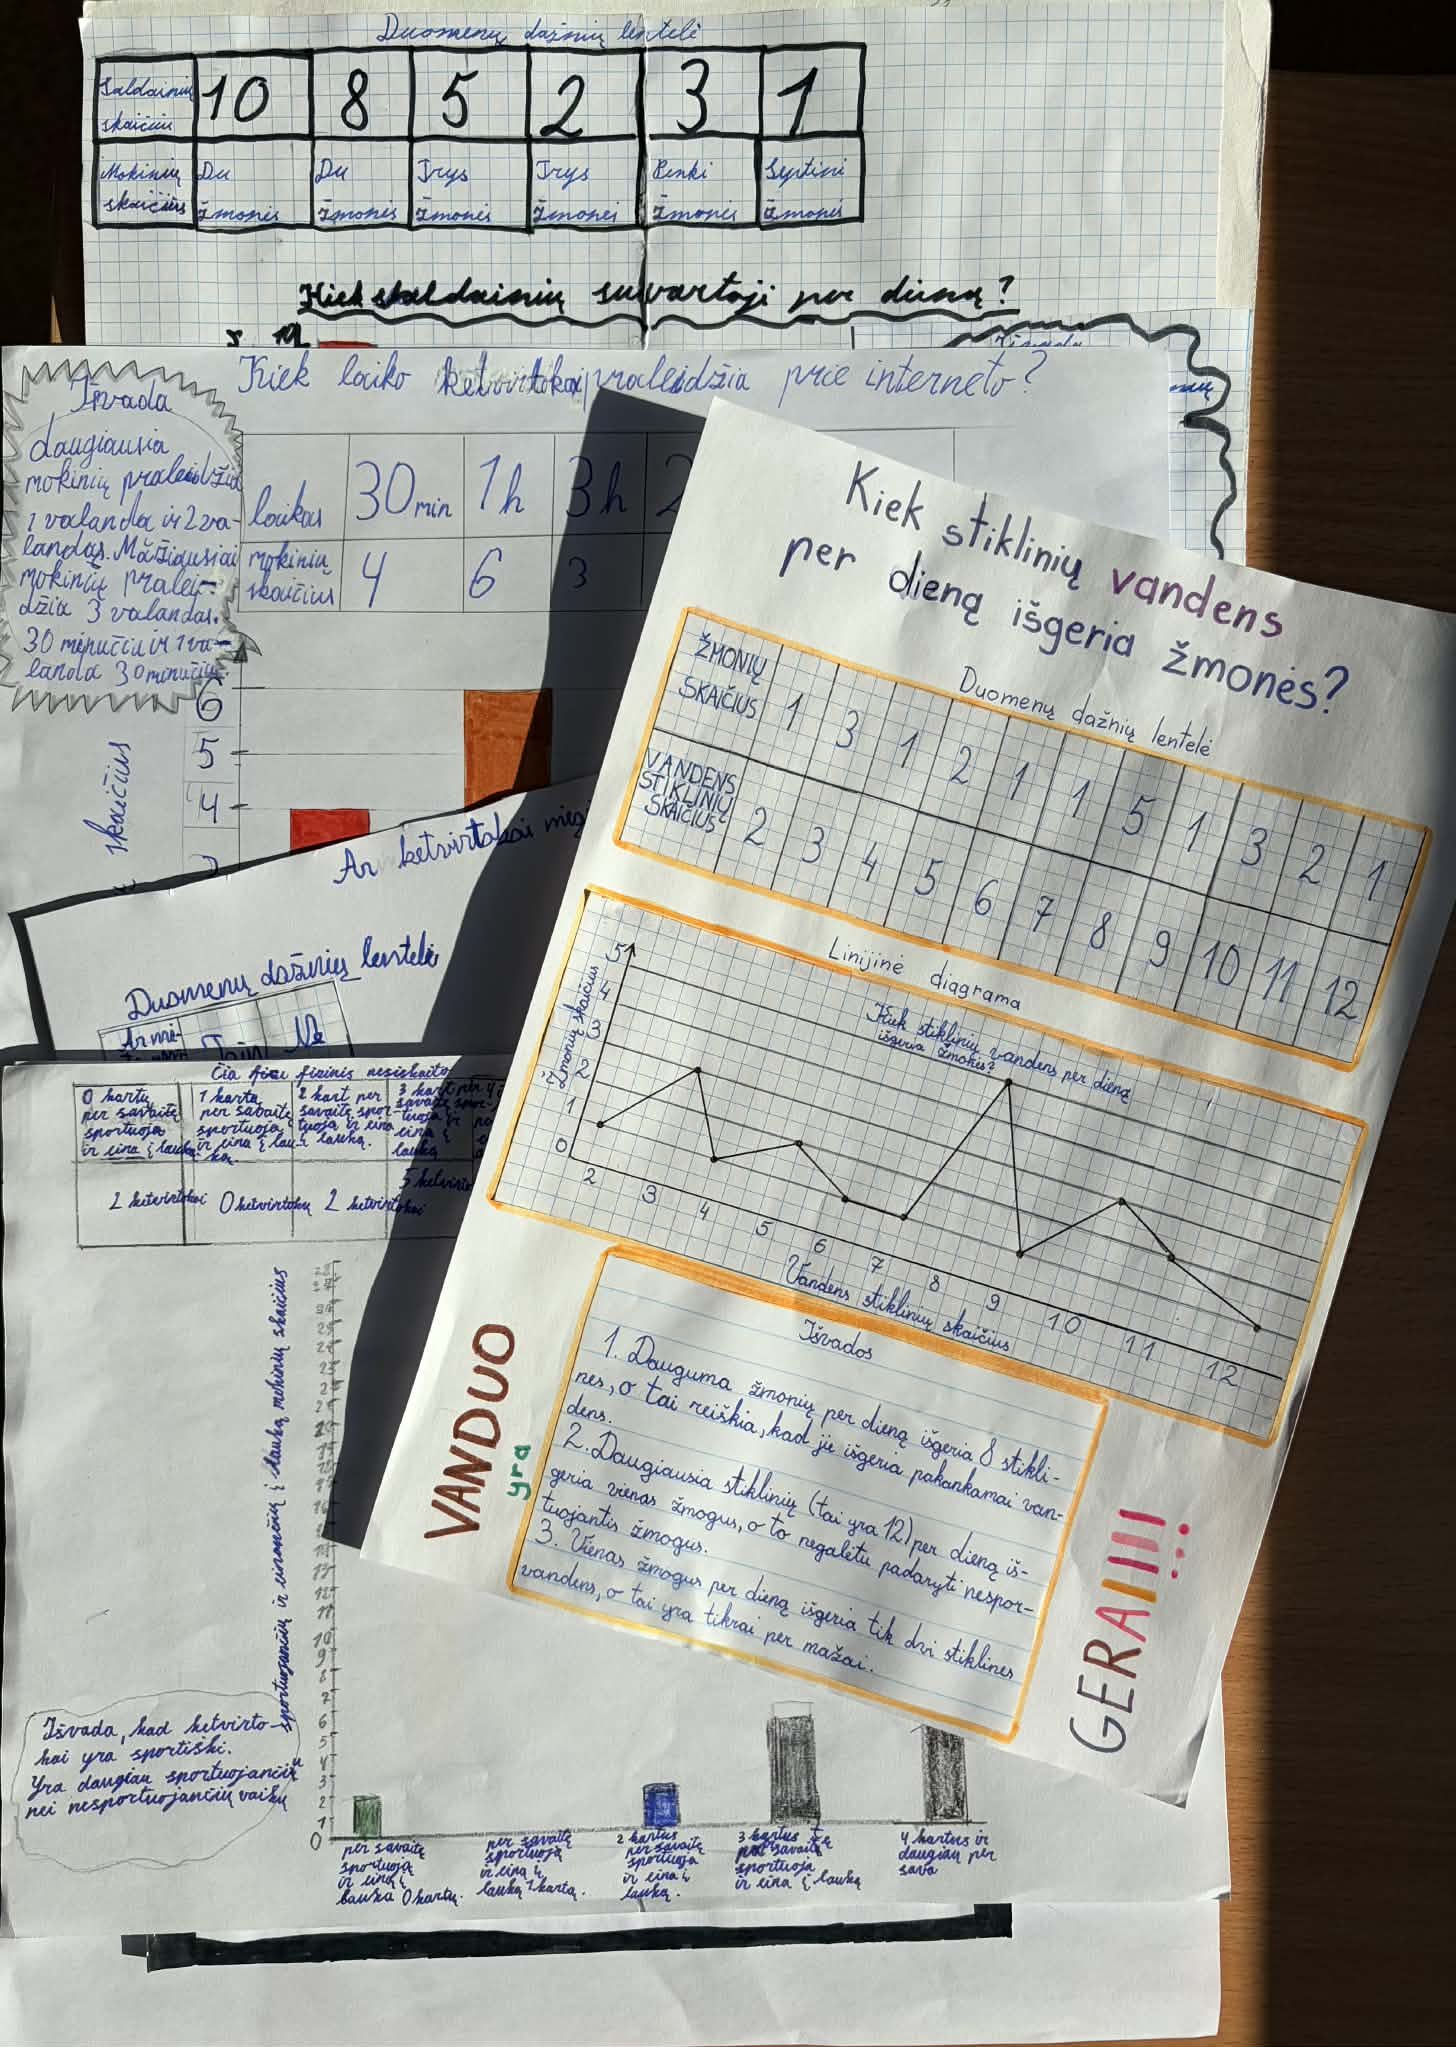 Duomenų dažnių lentelė
Saldainių skaičius 10 8 5 2 3 1
Mokinių skaičius Du žmonės Du žmonės Trys žmonės Trys žmonės Penki žmonės Septini žmonės
Kiek saldainių suvartoji per dieną?
Išvada
Kiek laiko ketvirtokai praleidžia prie interneto?
Išvada
daugiausia
mokinių praleidžia
1 valanda ir 2 va-
landas. Mažiausiai
mokinių pralei-
džia 3 valandas.
30 minučių ir 1 va-
landa 30 minučių.
laikas 30 min 1h 3h 2
mokinių skaičius 4 6 3
6
5
4
skaičius
Ar ketvirtokai
Duomenų dažnių lentelė
Taip Ne
Kiek stiklinių vandens
per dieną išgeria žmonės?
Duomenų dažnių lentelė
ŽMONIŲ SKAIČIUS 1 3 1 2 1 1 5 1 3 2 1
VANDENS STIKLINIŲ SKAIČIUS 2 3 4 5 6 7 8 9 10 11 12
Linijinė diagrama
Kiek stiklinių vandens per dieną
išgeria žmonės?
Žmonių skaičius
5
4
3
2
1
0
2 3 4 5 6 7 8 9 10 11 12
Vandens stiklinių skaičius
Išvados
1. Dauguma žmonių per dieną išgeria 8 stikli-
nes, o tai reiškia, kad jie išgeria pakankamai van-
dens.
2. Daugiausia stiklinių (tai yra 12) per dieną iš-
geria vienas žmogus, o to negalėtu padaryti nespor-
tuojantis žmogus.
3. Vienas žmogus per dieną išgeria tik dvi stiklines
vandens, o tai yra tikrai per mažai.
VANDUO
yra
GERAI!!!
Čia fizinis nesiskaito
0 kartų
per savaitę
sportuoja
ir eina į lauką
1 kartą
per savaitę
sportuoja
ir eina į lau-
ką.
2 kart per
savaitę spor-
tuoja ir eina
į lauką.
3 kart per
savaitę spor-
tuoja ir
eina į
lauką
2 ketvirtokai 0 ketvirtokų 2 ketvirtokai 5 ketvirto
sportuojančių ir einančių į lauką mokinių skaičius
12
11
10
9
8
7
6
5
4
3
2
1
0
Išvada, kad ketvirto-
kai yra sportiški.
Yra daugiau sportuojančių
nei nesportuojančių vaikų
per savaitę
sportuoja
ir eina į
lauka 0 kartų.
per savaitę
sportuoja
ir eina į
lauką 1 kartą.
2 kartus
per savaitę
sportuoja
ir eina į
lauką.
3 kartus
per savaitę
sportuoja
ir eina į lauką
4 kartus ir
daugiau per
sava